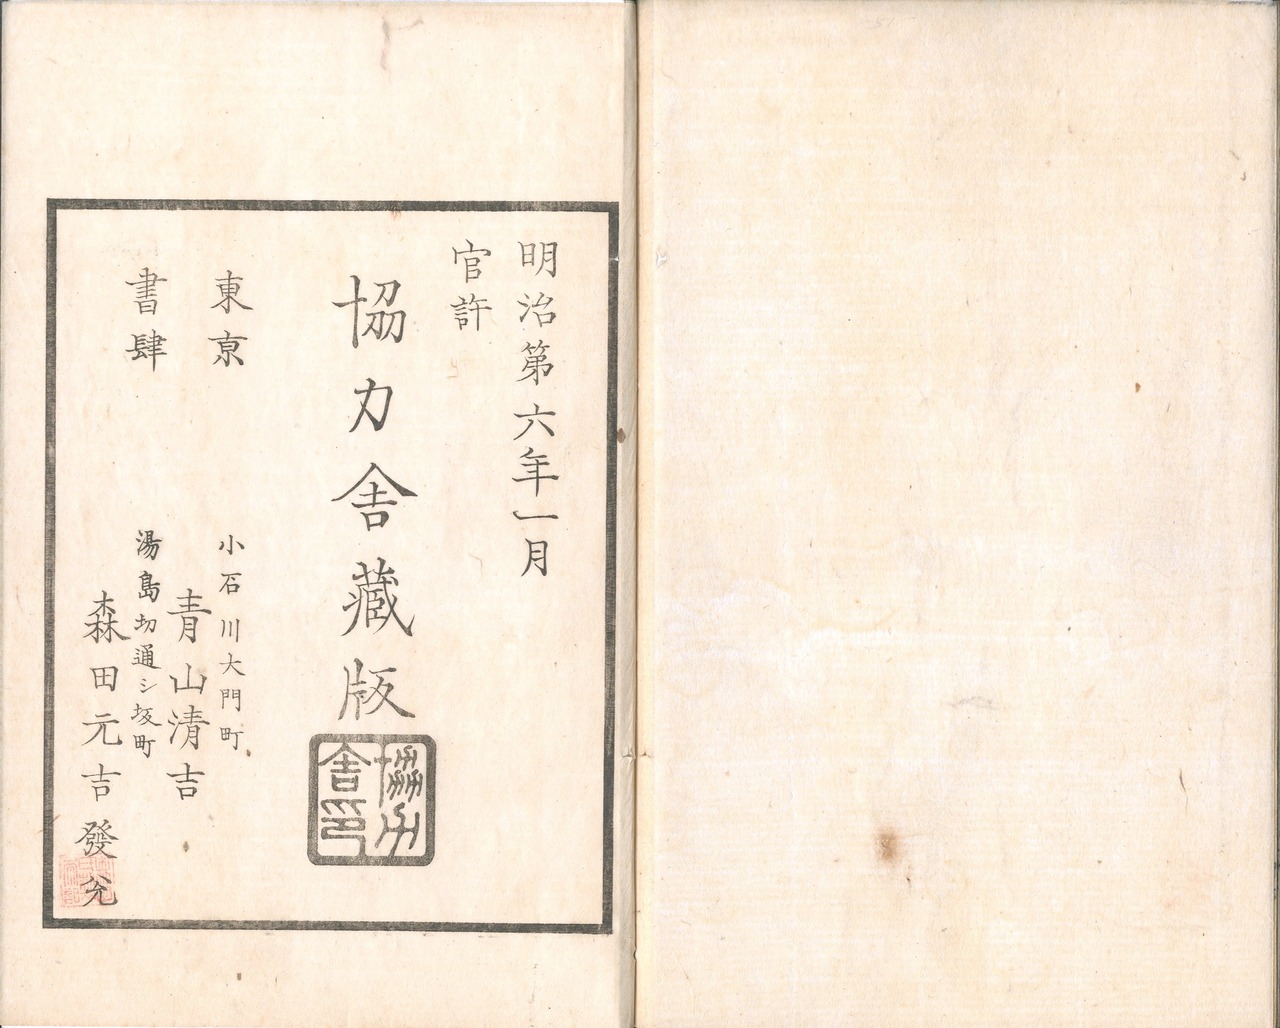 明治第六年一月
官許
協力舎藏版
協力舎印
東京
書肆
小石川大門町
青山清吉
湯島切通シ坂町
森田元吉
發兌